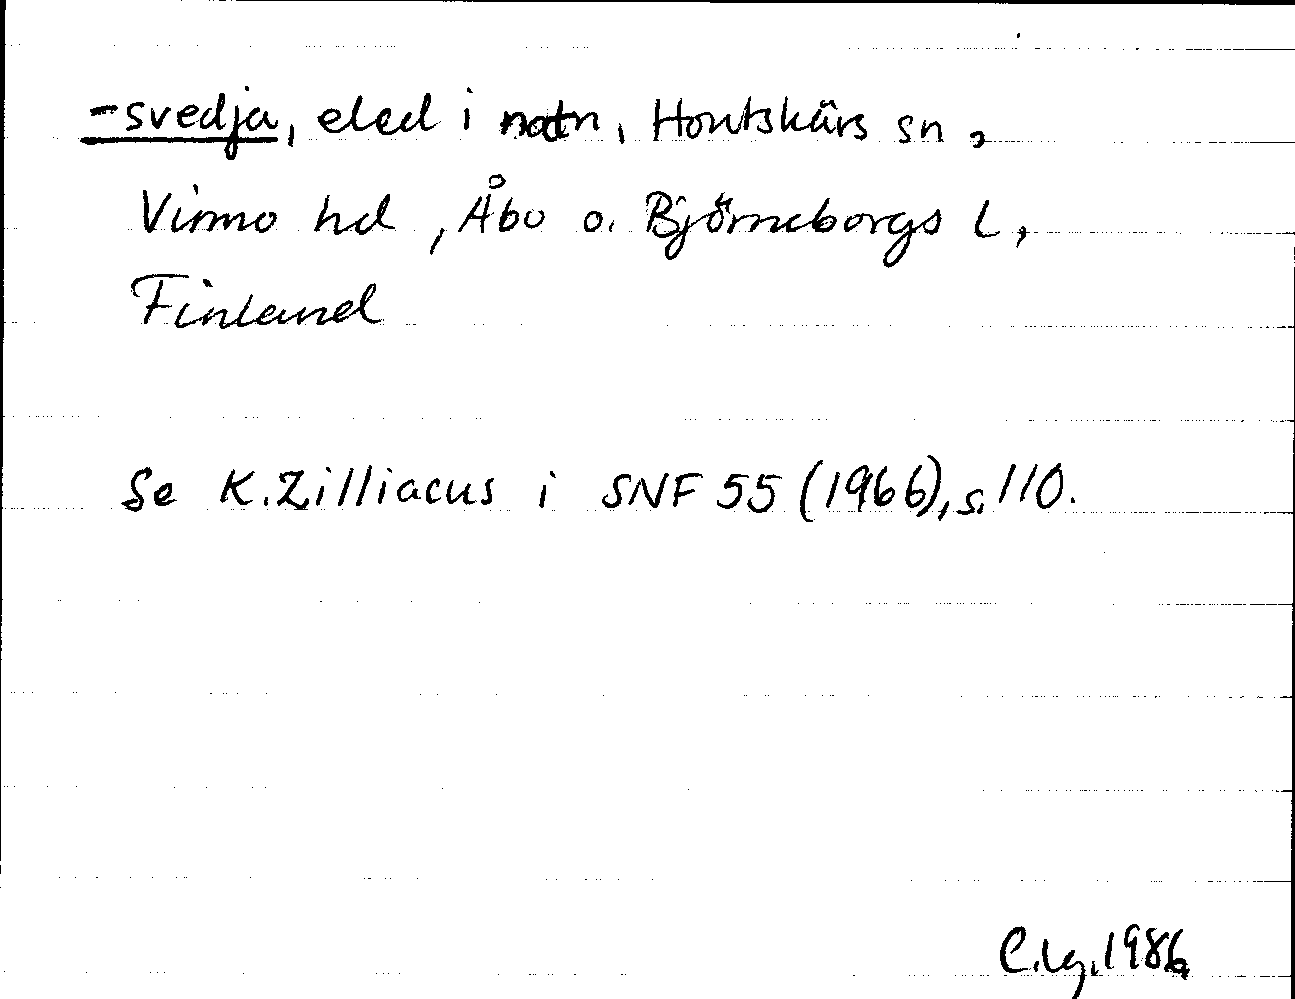 -svedja, eled i natn, Houtskärs sn,
Virmo hd, Åbo o. Björneborgs l,
Finland
Se K. Zilliacus i SNF 55 (1966), s. 110.
C.lg. 1986